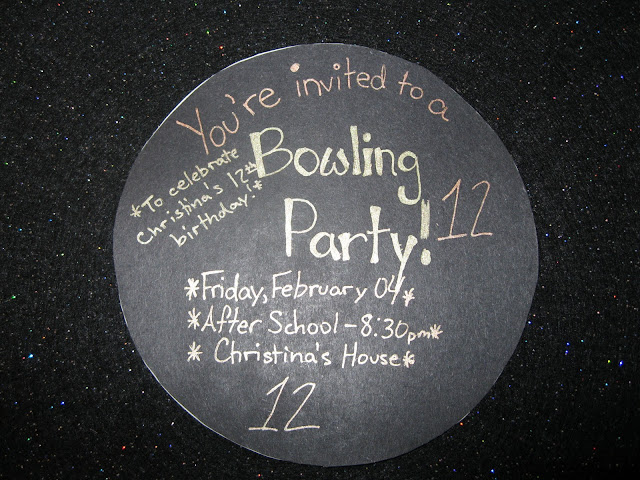 You're invited to a
Bowling
Party!
12
*To celebrate
Christina's 12th
birthday!*
*Friday, February 04*
*After School - 8:30pm*
* Christina's House*
12